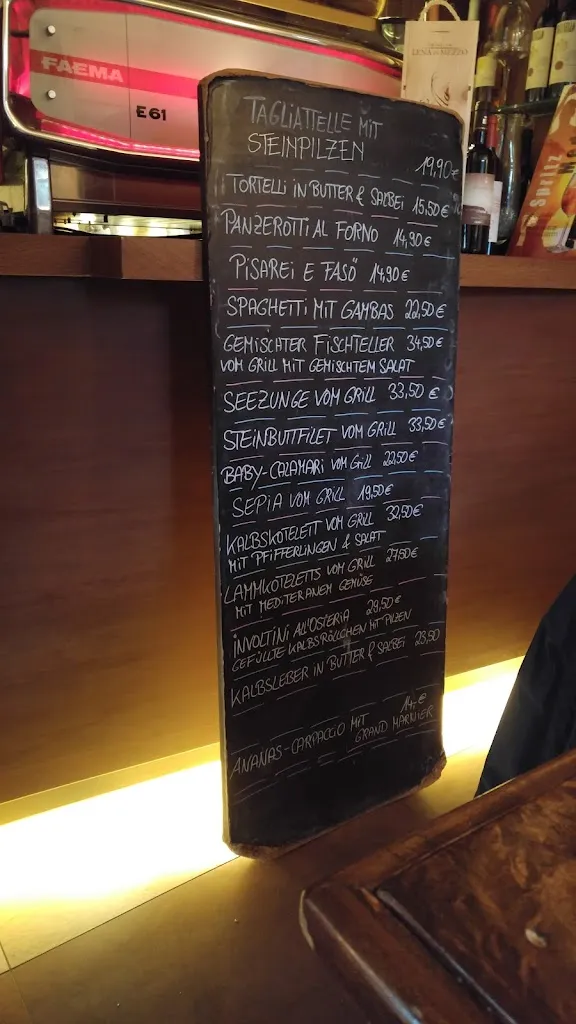 FAEMA
E61
LUNA DI MEZZO
Spritz
TAGLIATTELLE MIT
STEINPILZEN 19,90€
TORTELLI IN BUTTER & SALBEI 15,50€
PANZEROTTI AL FORNO 14,90€
PISAREI E FASÖ 14,90€
SPAGHETTI MIT GAMBAS 22,50€
GEMISCHTER FISCHTELLER 34,50€
VOM GRILL MIT GEMISCHTEM SALAT
SEEZUNGE VOM GRILL 33,50€
STEINBUTTFILET VOM GRILL 33,50€
BABY-CALAMARI VOM GRILL 22,50€
SEPIA VOM GRILL 19,50€
KALBSKOTELETT VOM GRILL 32,50€
MIT PFIFFERLINGEN & SALAT
LAMMKOTELETTS VOM GRILL 27,50€
MIT MEDITERANEM GEMÜSE
INVOLTINI ALL'OSTERIA 29,50€
GEFÜLLTE KALBSRÖLLCHEN MIT PILZEN
KALBSLEBER IN BUTTER & SALBEI 28,50
ANANAS-CARPACCIO MIT 14,-€
GRAND MARNIER